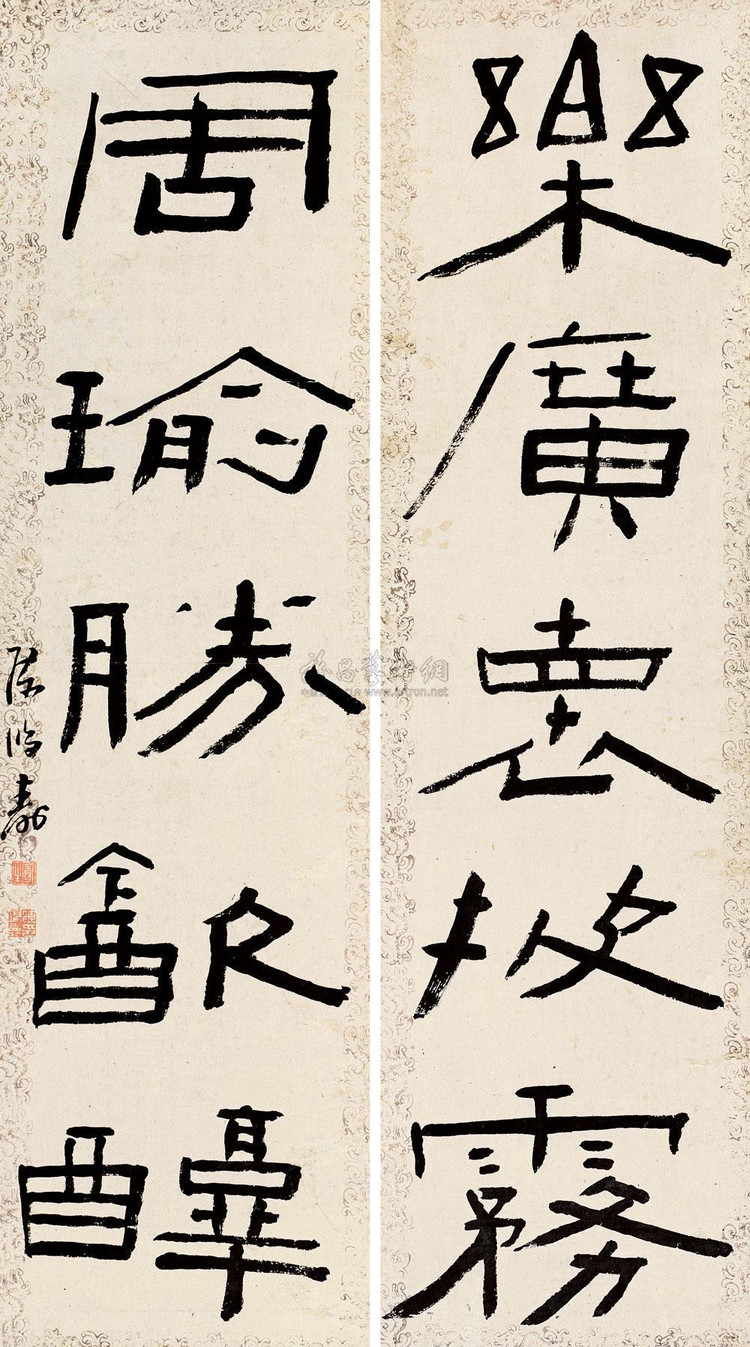 樂廣袁披霧
周瑜勝飲醇
陳鴻壽
雅昌藝術網
www.artron.net